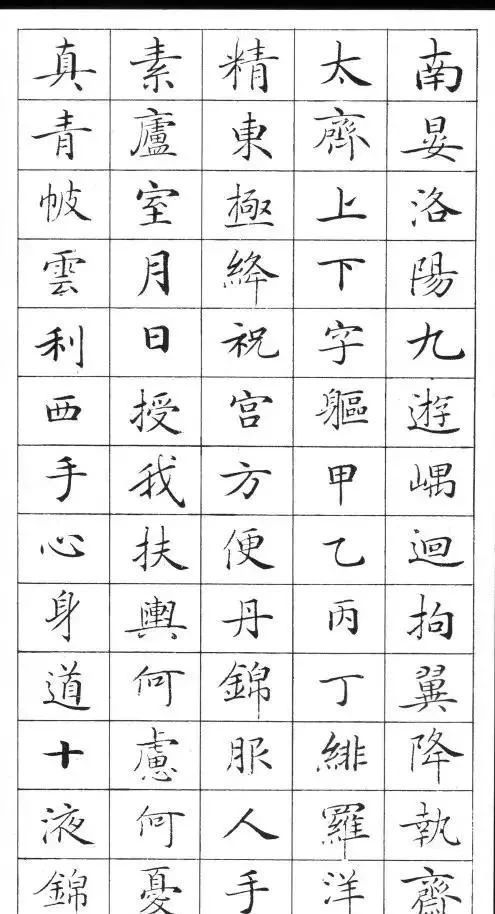 南晏洛陽九遊嵎迴拘翼降執齊
太齊上下字軀甲乙丙丁緋羅洋
精東極絳祝宮方便丹錦服人手
素廬室月日授我扶輿何慮何憂
真青帔雲利西手心身道十液錦